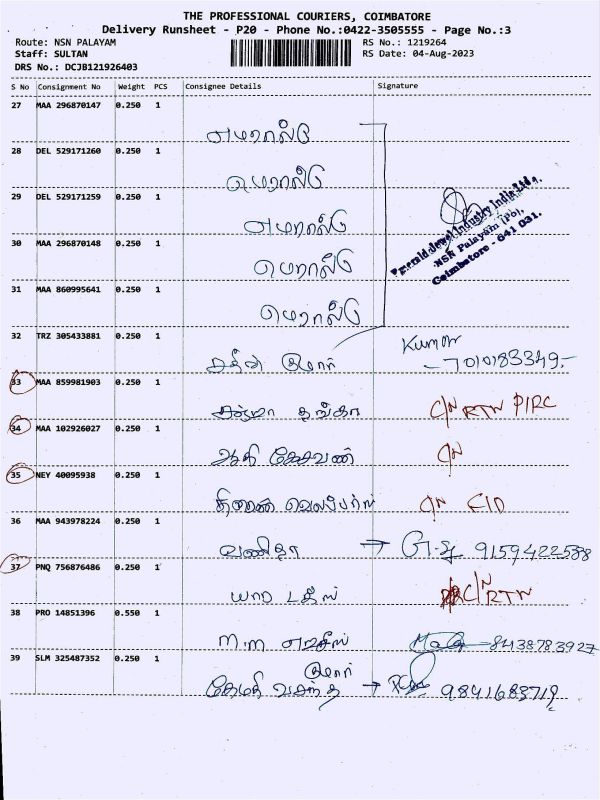 THE PROFESSIONAL COURIERS, COIMBATORE
Delivery Runsheet - P20 - Phone No.:0422-3505555 - Page No.:3
Route: NSN PALAYAM RS No.: 1219264
Staff: SULTAN RS Date: 04-Aug-2023
DRS No.: DCJB121926403
S No Consignment No Weight PCS Consignee Details Signature
27 MAA 296870147 0.250 1
எமரால்டு
28 DEL 529171260 0.250 1
எமரால்டு
29 DEL 529171259 0.250 1
எமரால்டு
Emerald Jewel Industry India Ltd.,
NSN Palayam (Po),
Coimbatore - 641 031.
30 MAA 296870148 0.250 1
எமரால்டு
31 MAA 860995641 0.250 1
எமரால்டு
32 TRZ 305433881 0.250 1
குமார் Kumar
7010183349
33 MAA 859981903 0.250 1
தங்கா C/N RTN PIRC
34 MAA 102926027 0.250 1
ஆதி கேசவன் C/N
35 NEY 40095938 0.250 1
C/N
36 MAA 943978224 0.250 1
வணிதா →
37 PNQ 756876486 0.250 1
C/N RTN
38 PRO 14851396 0.550 1
M.M 8438783927
39 SLM 325487352 0.250 1
குமார்
வசந்த → 9841683719